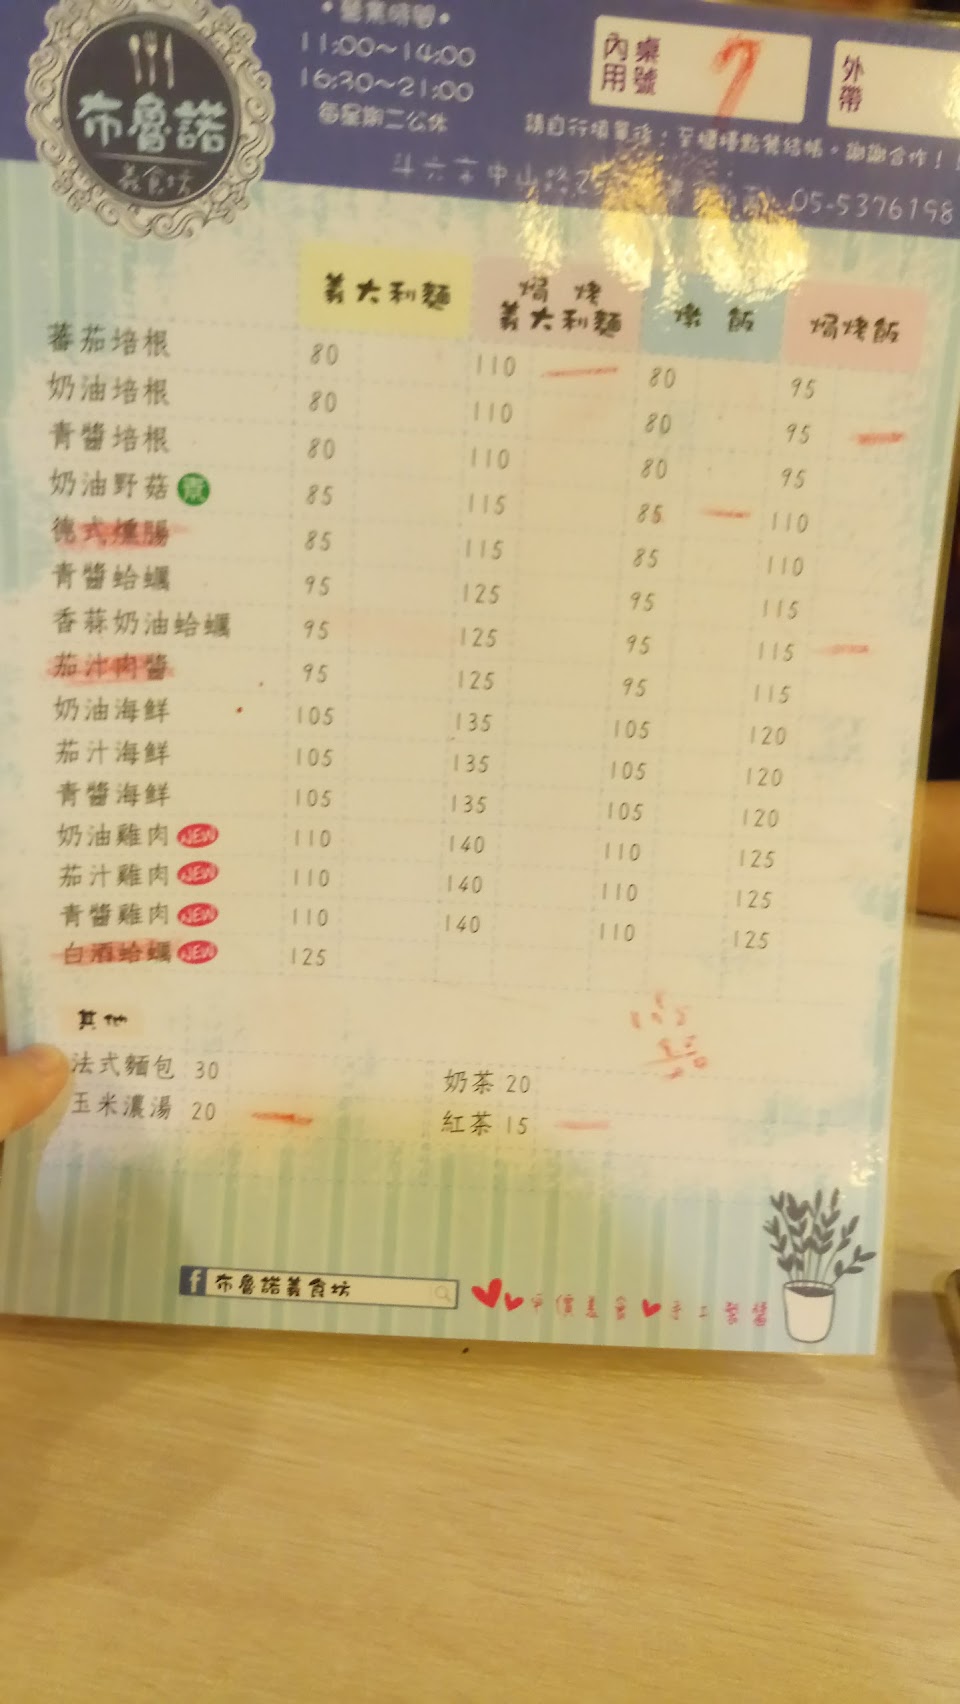 布魯諾
義食坊
•營業時間•
11:00～14:00
16:30～21:00
每星期二公休
內用 桌號 7
外帶
請自行填單後，至櫃檯點餐結帳。謝謝合作！
斗六市中山路 05-5376198
義大利麵 焗烤義大利麵 燉飯 焗烤飯
蕃茄培根 80 110 80 95
奶油培根 80 110 80 95
青醬培根 80 110 80 95
奶油野菇 素 85 115 85 110
德式燻腸 85 115 85 110
青醬蛤蠣 95 125 95 115
香蒜奶油蛤蠣 95 125 95 115
茄汁肉醬 95 125 95 115
奶油海鮮 105 135 105 120
茄汁海鮮 105 135 105 120
青醬海鮮 105 135 105 120
奶油雞肉 NEW 110 140 110 125
茄汁雞肉 NEW 110 140 110 125
青醬雞肉 NEW 110 140 110 125
白酒蛤蠣 NEW 125
其他
法式麵包 30 奶茶 20
玉米濃湯 20 紅茶 15
f 布魯諾義食坊
平價美食 手工製醬